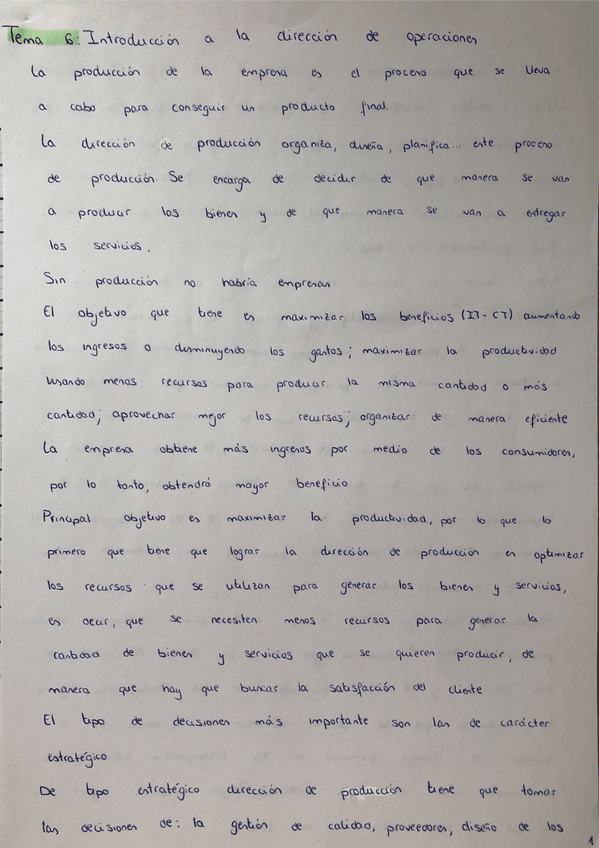 Tema 6: Introducción a la dirección de operaciones
La producción de la empresa es el proceso que se lleva
a cabo para conseguir un producto final.
La dirección de producción organiza, diseña, planifica... este proceso
de producción. Se encarga de decidir de que manera se van
a producir los bienes y de que manera se van a entregar
los servicios.
Sin producción no habría empresas
El objetivo que tiene es maximizar los beneficios (IT-CT) aumentando
los ingresos o disminuyendo los gastos; maximizar la productividad
usando menos recursos para producir la misma cantidad o más
cantidad; aprovechar mejor los recursos; organizar de manera eficiente
La empresa obtiene más ingresos por medio de los consumidores,
por lo tanto, obtendrá mayor beneficio
Principal objetivo es maximizar la productividad, por lo que lo
primero que tiene que lograr la dirección de producción es optimizar
los recursos que se utilizan para generar los bienes y servicios,
es decir, que se necesiten menos recursos para generar la
cantidad de bienes y servicios que se quieren producir, de
manera que hay que buscar la satisfacción del cliente
El tipo de decisiones más importante son las de carácter
estratégico
De tipo estratégico dirección de producción tiene que tomar
las decisiones de: la gestión de calidad, proveedores, diseño de los
1